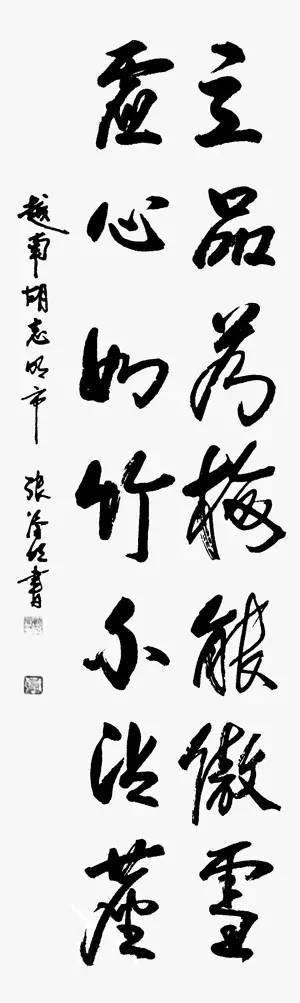 立品為梅能傲雪
虛心如竹不沾塵
越南胡志明市 張書